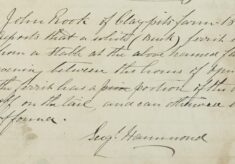 John Rook of Clay pits farm
reports that a white (Buck) ferret
from a stable at the above named fa
evening between the hours of 4pm
the ferret has a portion of the
off on the tail and can otherwise
found
Sergt Hammond